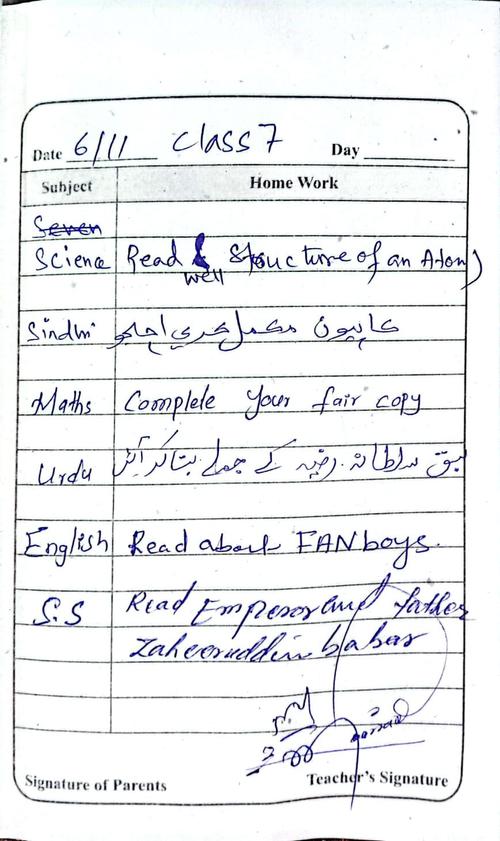 Date 6/11 Class 7 Day
Subject Home Work
Seven
Science Read well (Structure of an Atom)
Sindhi ڪاپيون مڪمل ڪري اچجو
Maths Complete your fair copy
Urdu سبق سلطانہ رضیہ کے جملے بنا کر آئیں
English Read about FANboys.
S.S Read Emperor and father
Zaheeruddin babar
Signature of Parents Teacher's Signature